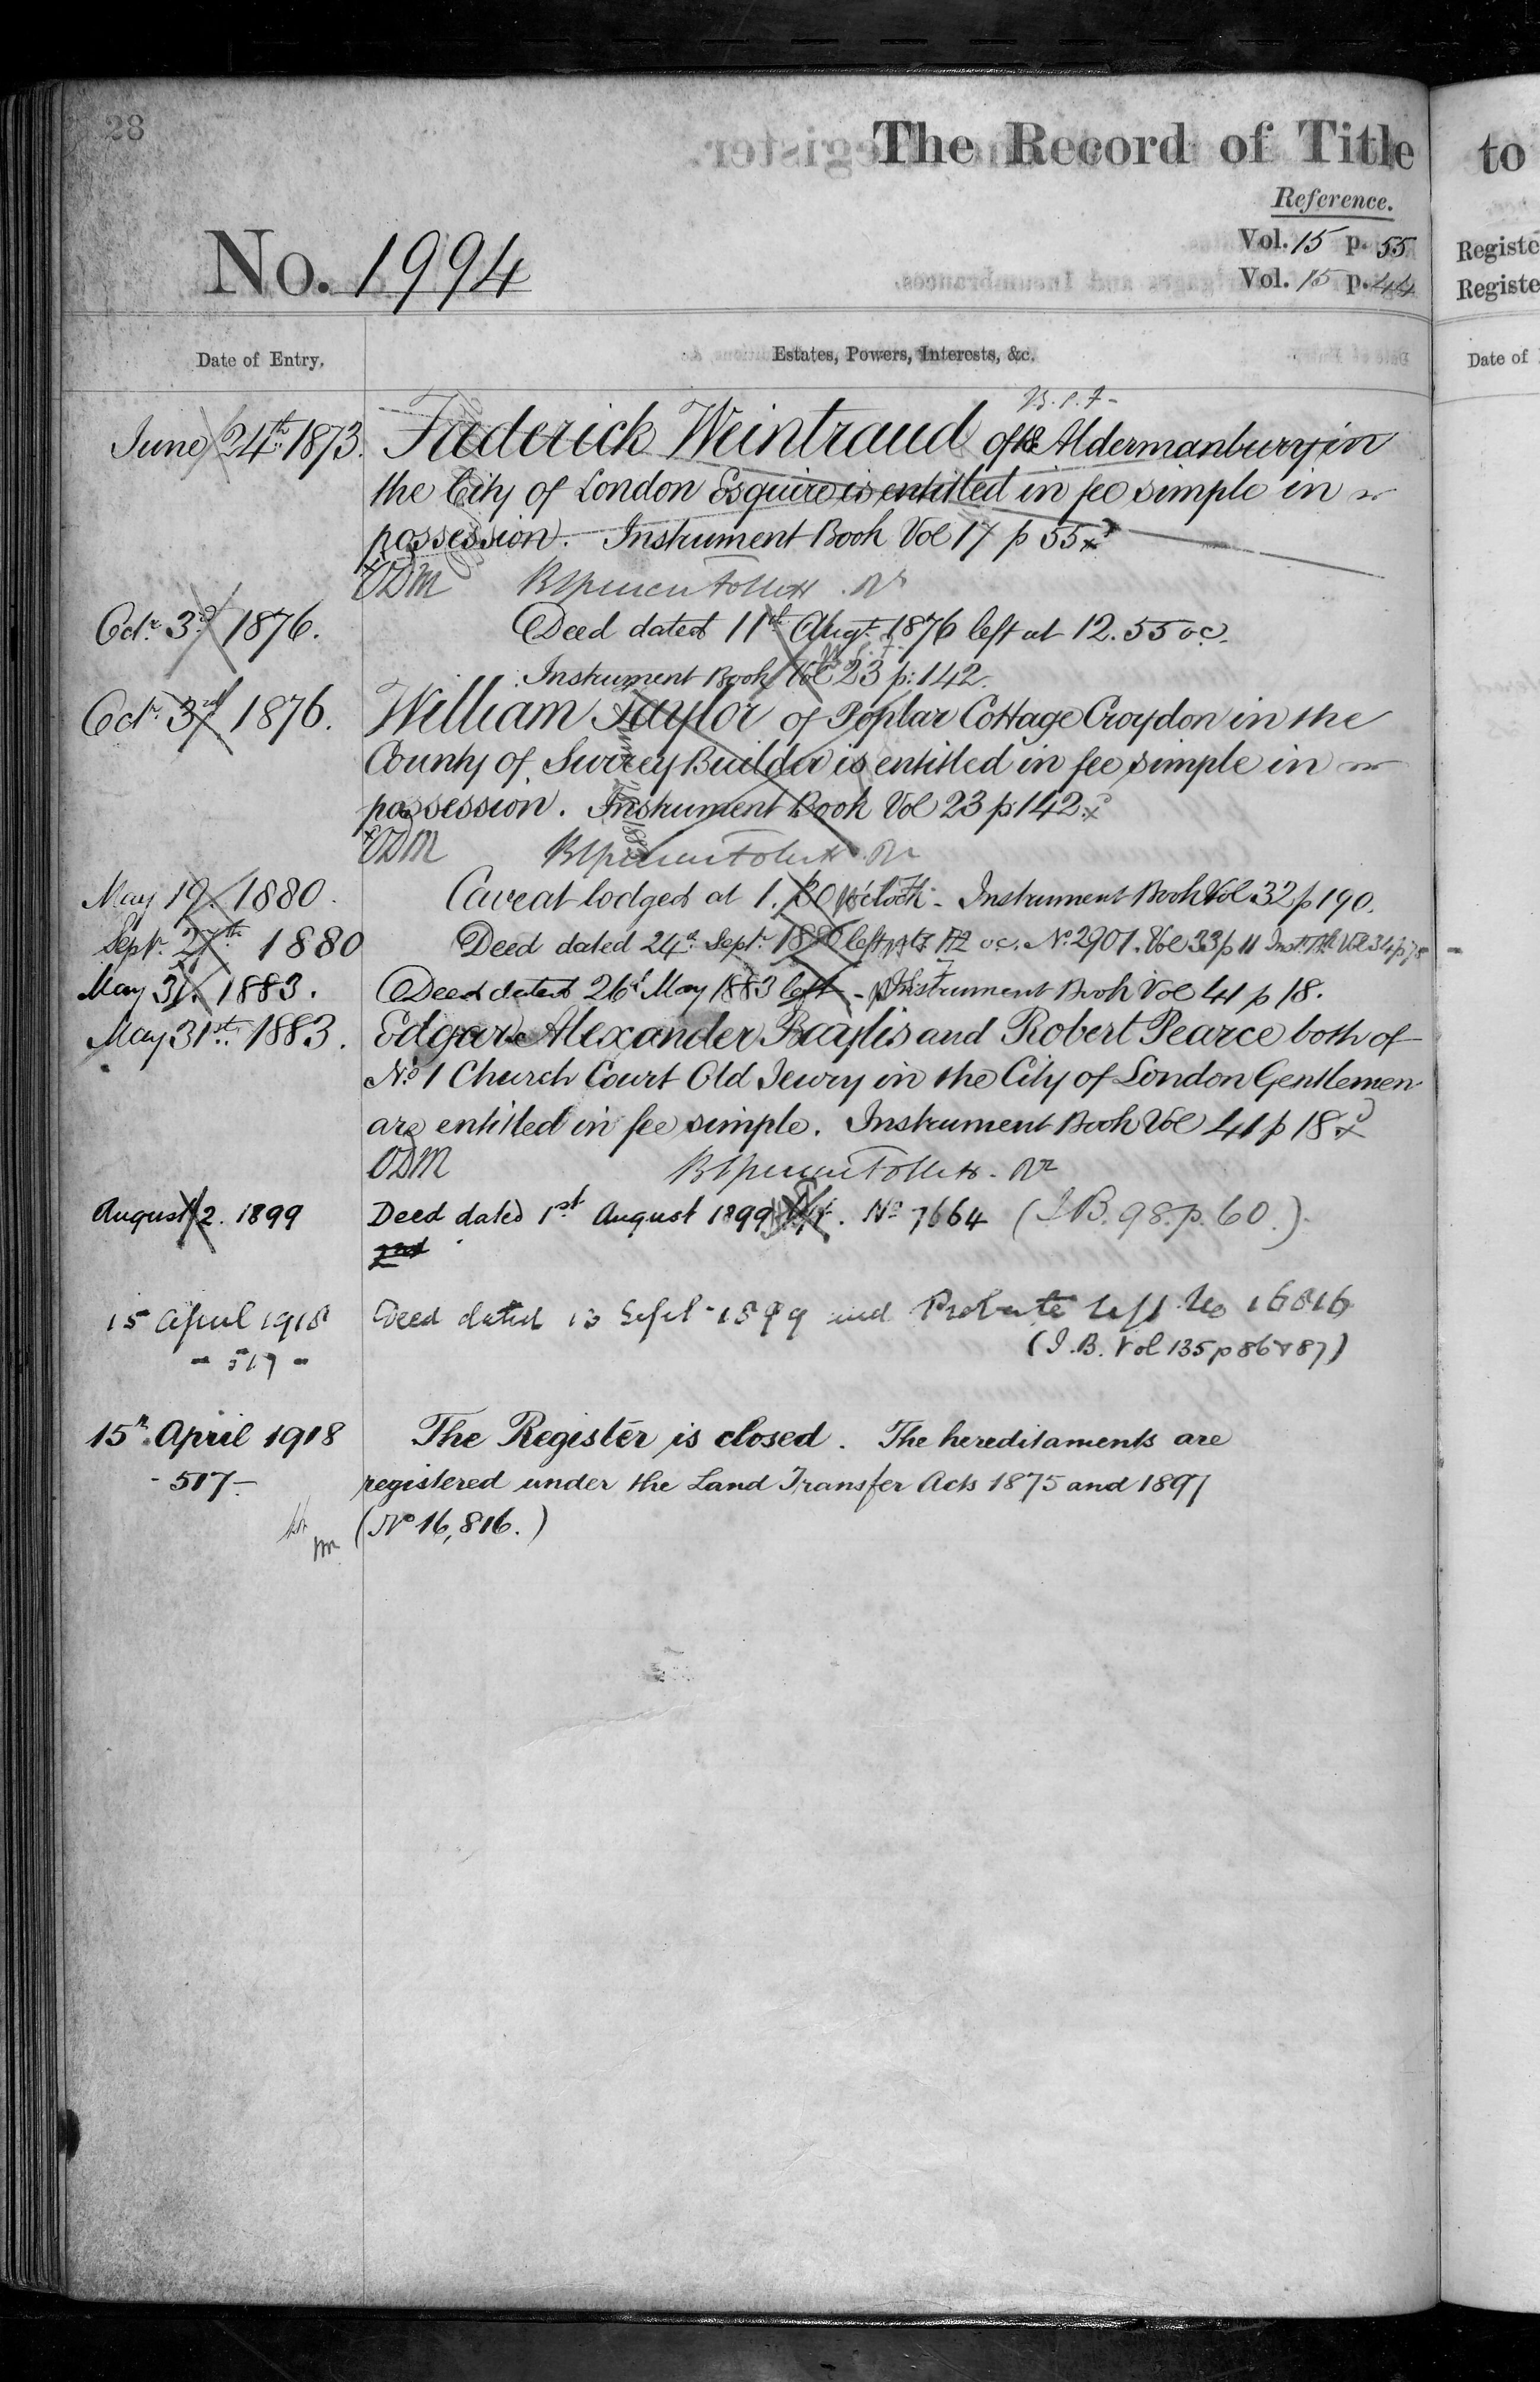 28
The Record of Title
to
Reference.
Vol. 15 p. 55
Registe
No. 1994
Vol. 15 p. 44
Registe
Date of Entry.
Estates, Powers, Interests, &c.
Date of
June 24th 1873.
Frederick Weintraud of 18 Aldermanbury in
the City of London Esquire is entitled in fee simple in
possession. Instrument Book Vol 17 p 55
ODM
Octr. 3rd 1876.
Deed dated 11th Augt. 1876 left at 12.55 oc.
Instrument Book Vol 23 p: 142.
Octr. 3rd 1876.
William Taylor of Poplar Cottage Croydon in the
County of Surrey Builder is entitled in fee simple in
possession. Instrument Book Vol 23 p 142
ODM
May 19. 1880.
Caveat lodged at 1.30 o'clock - Instrument Book Vol 32 p 190.
Septr. 27th 1880
Deed dated 24th Septr. 1880 left at 12 oc. No. 2901. Vol 33 p 11 Inst. Bk Vol 34 p 78
May 31. 1883.
Deed dated 26th May 1883 left - Instrument Book Vol 41 p 18.
May 31st. 1883.
Edgar Alexander Baylis and Robert Pearce both of
No. 1 Church Court Old Jewry in the City of London Gentlemen
are entitled in fee simple. Instrument Book Vol 41 p 18
ODM
August 2. 1899
Deed dated 1st August 1899 left. No 7664 (I.B. 98. p. 60.)
2nd
15 April 1918
Deed dated 13 Sept 1899 and Probate left No 16816
- 517 -
(I.B. Vol 135 p 86 & 87)
15th April 1918
The Register is closed. The hereditaments are
- 517 -
registered under the Land Transfer Acts 1875 and 1897
(No 16,816.)